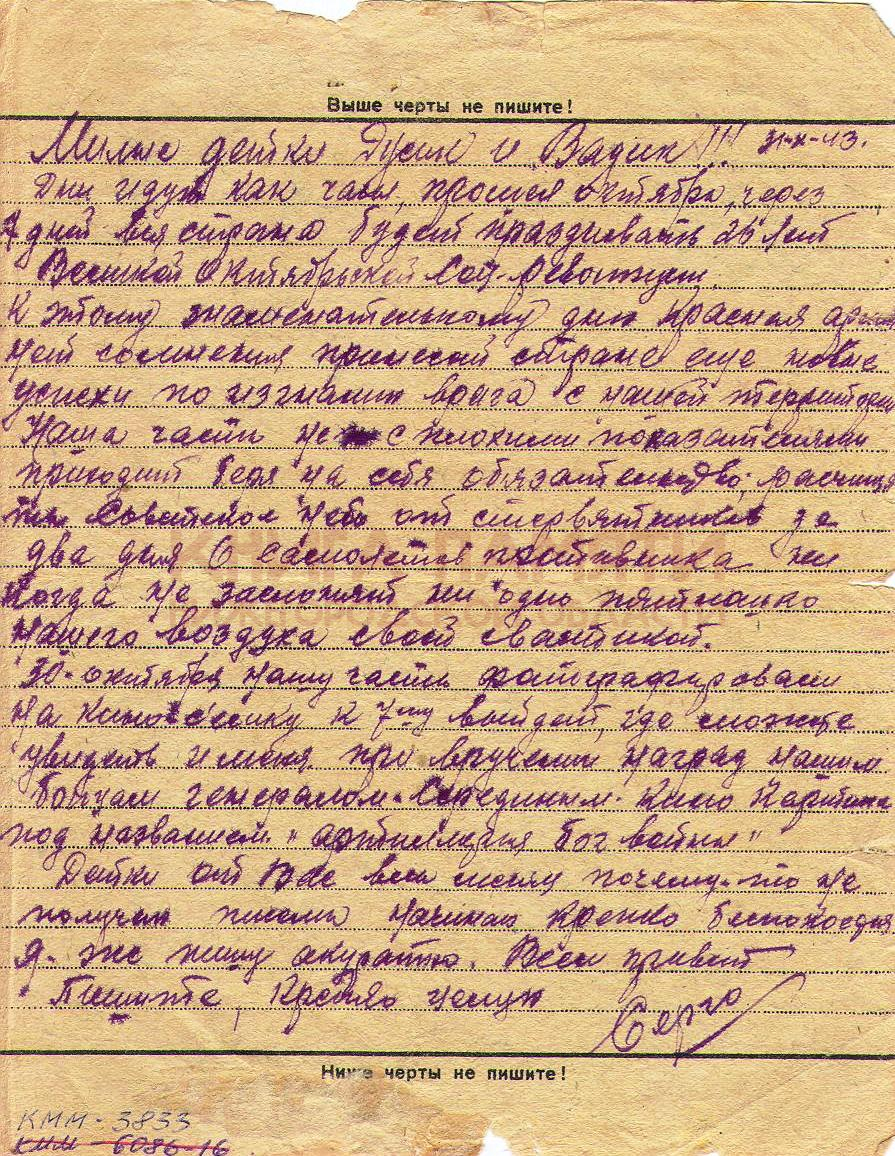 Выше черты не пишите!
Милые детки Дусик и Вадик!!! 31-X-43.
Дни идут как часы, прошел октябрь, через
7 дней вся страна будет праздновать 26 лет
Великой Октябрьской Соц. Революции.
К этому знаменательному дню Красная армия
нет сомнения принесет стране еще новые
успехи по изгнанию врага с нашей территории
Наша часть не с плохими показателями
приходит беря на себя обязательство,
Советское небо от стервятников за
два дня 6 самолетов противника ни
когда не заслонят ни одно пятнышко
нашего воздуха своей свастикой.
30-октября нашу часть фотографировали
на киносъемку к 7му выйдет, где можете
увидеть и меня при вручении наград нашим
бойцам генералом Серединым. Кино Картина
под названием "артиллерия бог войны"
Детки от Вас весь месяц почему-то не
получаю писем начинаю крепко беспокоиться
я-же пишу акуратно. Всем привет
Пишите, Крепко целую
Серго
Ниже черты не пишите!
КММ-3833
КММ-6086-16
КНИГА ПАМЯТИ